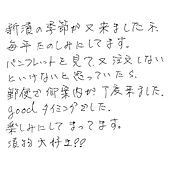 新漬の季節が又来ましたネ
毎年たのしみにしてます。
パンフレットを見て、又注文しない
といけないと思っていたら、
郵便で御案内が丁度来ました。
goodタイミングでした。
楽しみにしてまってます。
漬物大好き!!